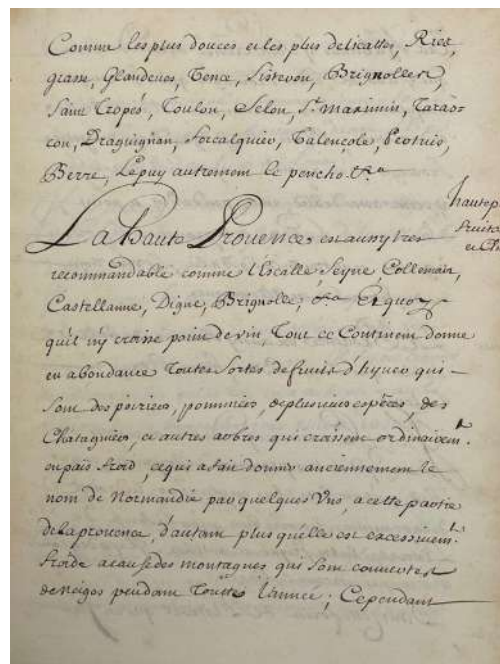 Comme les plus douces et les plus delicattes, Riez,
grasse, Glandeues, Vence, Sisteron, Brignolles,
Saint Tropés, Toulon, Selon, St. maximin, Taras=
con, Draguignan, forcalquier, Valençole, Pertuis,
Berre, Lepuy autrement le pencho &ca
hautep
fruits
et
La haute Prouence est aussy tres
recommandable comme l'Escalle, Seyne, Collemair,
Castellanne, Digne, Brignolle, &ca Et quoy
qu'il n'y croisse point de vin, Tout ce Continent donne
en abondance Toutes Sortes de fruits d'hyuer qui
sont des poiriers, pommiers, de plusieurs espéces, des
Chataguiers, et autres arbres qui croissent ordinairemt.
en païs froid, ce qui a fait donner anciennement le
nom de Normandie par quelques Vns, a cette partie
de la prouence, d'autant plus qu'elle est excessiuemt.
froide a cause des montagnes qui sont couuertes
de neiges pendant Touttes l'année; Cependant